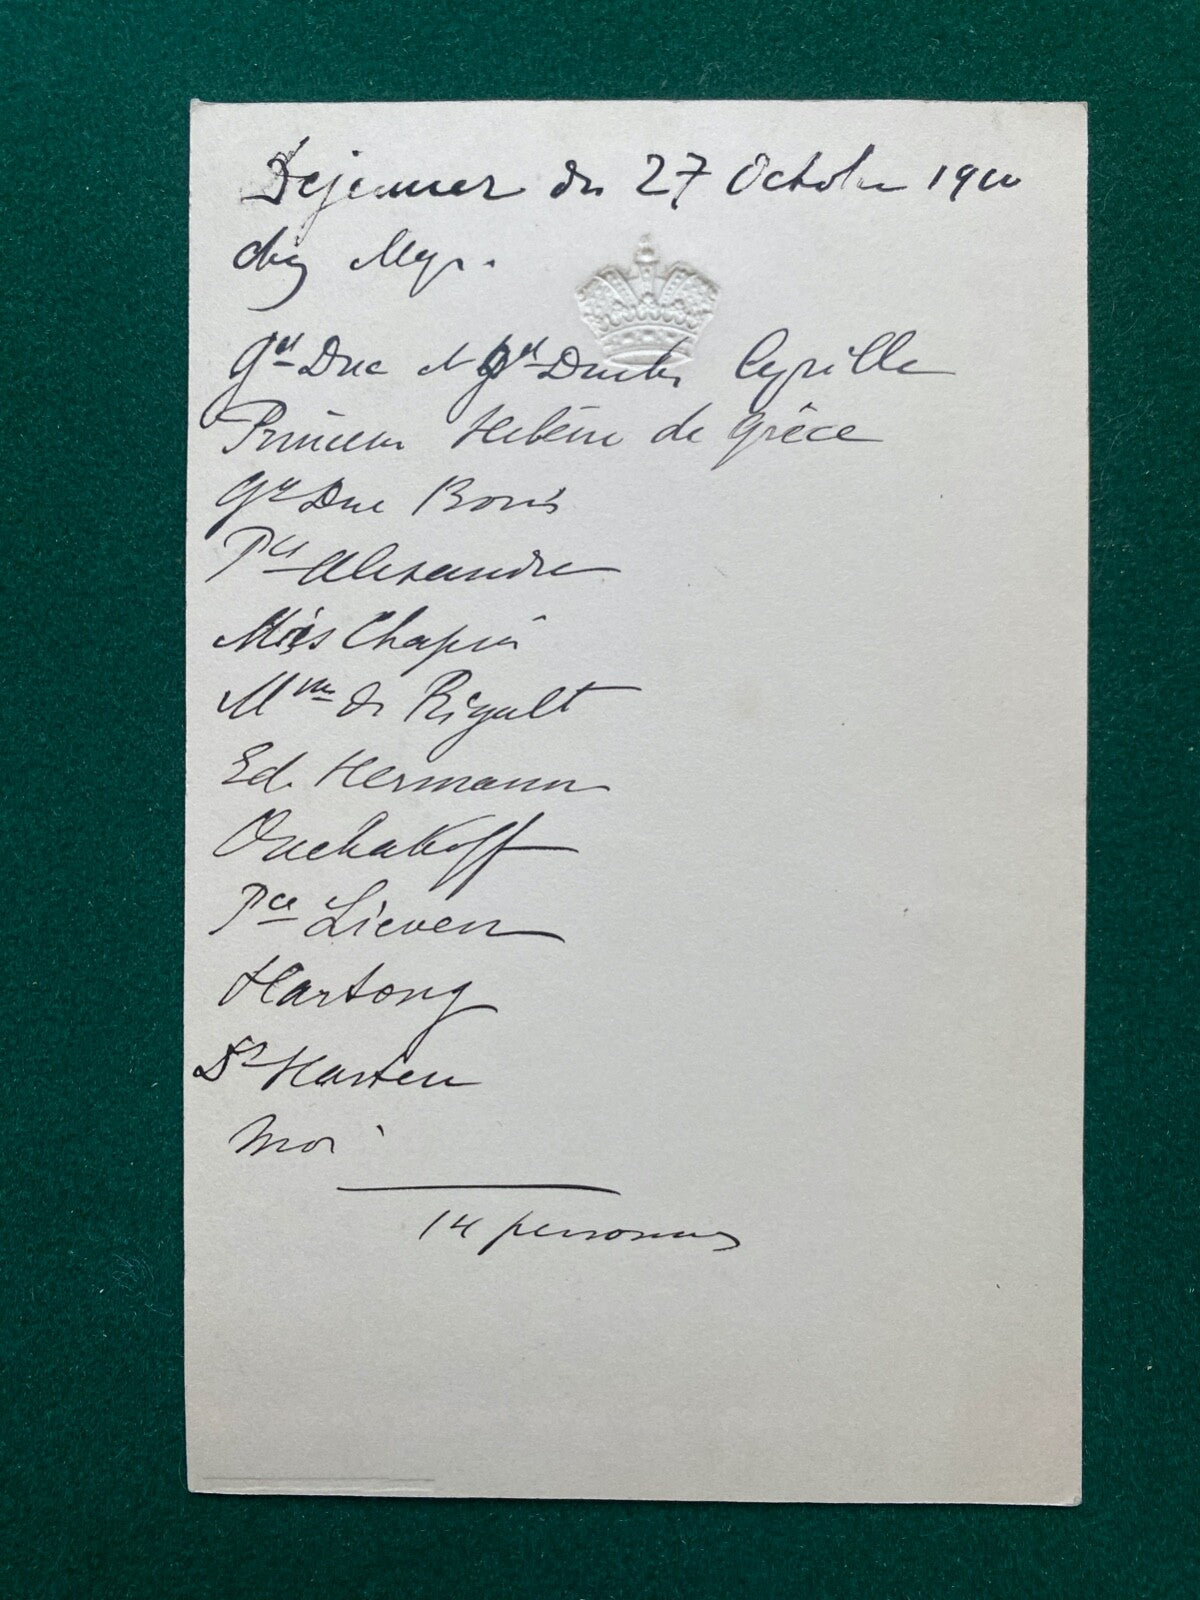 Dejeuner du 27 Octobre 1910
chez Mgr.
Gd Duc et Gd Duchs Cyrille
Princesse Hélène de Grèce
Gd Duc Boris
Pce Alexandre
Miss Chapin
Mme de Rigault
Ed. Hermann
Ouchakoff
Pce Lieven
Hartong
Dr Harten
Moi
14 personnes